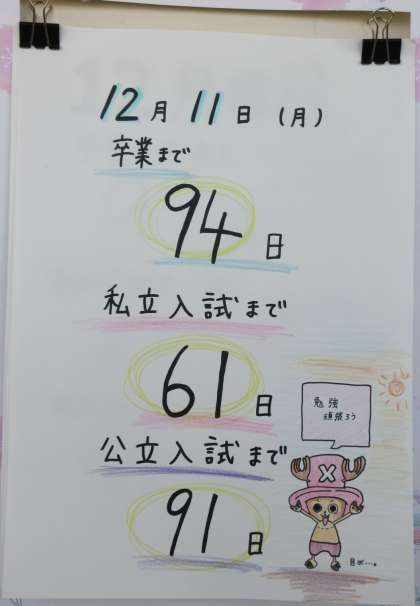 12月11日(月)
卒業まで
94日
私立入試まで
61日
公立入試まで
91日
勉強
頑張ろう
目が…。